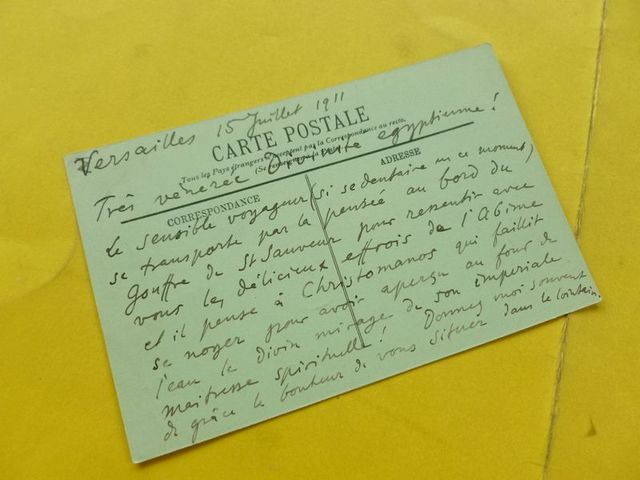 Versailles 15 Juillet 1911
CARTE POSTALE
Tous les Pays étrangers n'acceptent pas la Correspondance au recto.
(Se renseigner à la Poste)
Très vénérée Divinité égyptienne !
CORRESPONDANCE
ADRESSE
Le sensible voyageur (si sedentaire en ce moment)
se transporte par la pensée au bord du
Gouffre de St Sauveur pour ressentir avec
vous les délicieux effrois de l'Abîme
et il pense à Christomanos qui faillit
se noyer pour avoir aperçu au fond de
l'eau le divin mirage de son impériale
maitresse spirituelle ! Donnez moi souvent
de grâce le bonheur de vous situer dans le lointain.